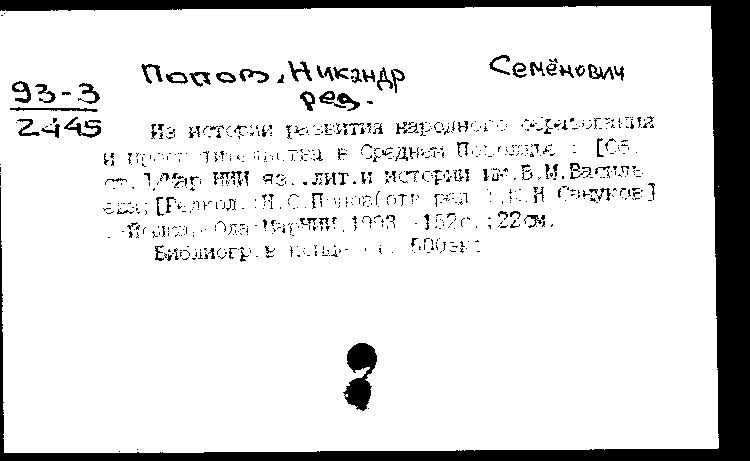 Попов, Никандр Семёнович
ред.
93-3
2445
Из истории развития народного образования
и просветительства в Среднем Поволжье : [Сб.
ст.]/Мар НИИ яз.,лит.и истории им.В.М.Василь
ева;[Редкол.:Н.С.Попов(отв ред ),К.Н Сануков]
.-Йошкар-Ола:МарНИИ,1993 -152с.;22см.
Библиогр.в конце ст. 500экз